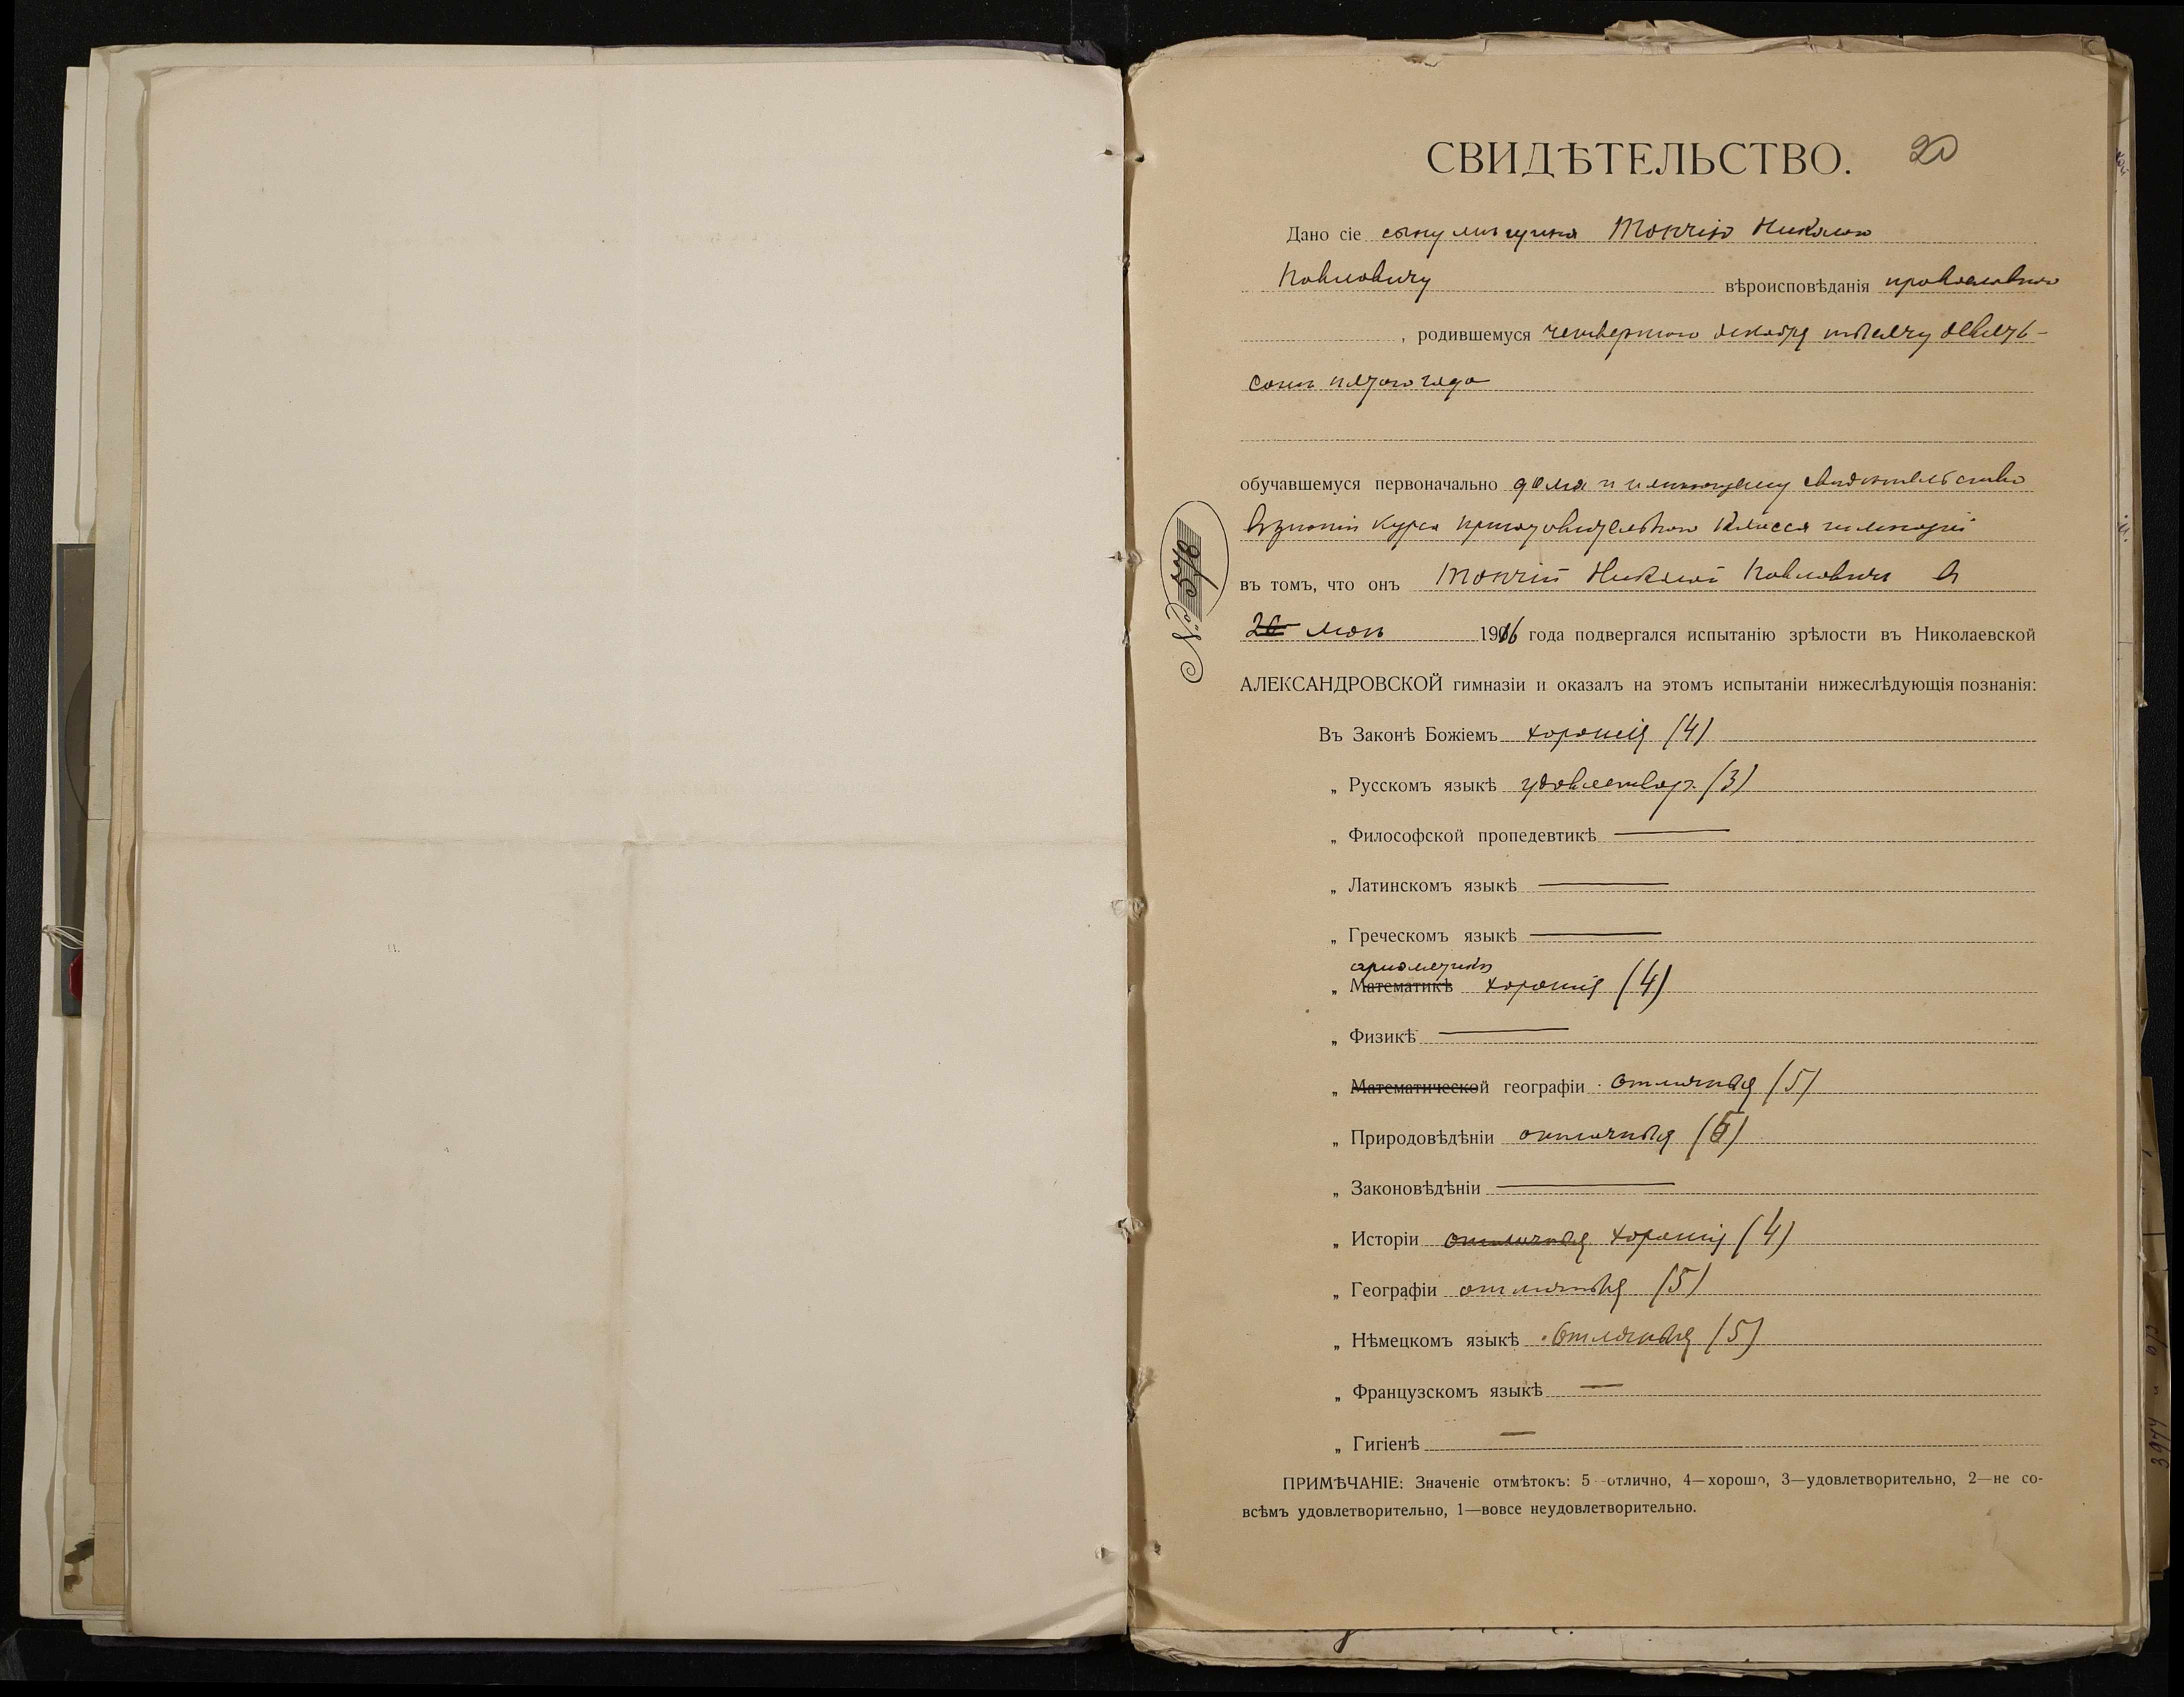 СВИДѢТЕЛЬСТВО. 20
Дано сіе сыну мѣщанина Топчію Николаю
Павловичу вѣроисповѣданія православнаго
, родившемуся четвертаго декабря тысячу девять-
сотъ пятаго года
обучавшемуся первоначально дома и имѣющему свидѣтельство
въ знаніи курса приготовительнаго класса гимназіи
въ томъ, что онъ Топчій Николай Павловичъ въ
20 маѣ 1916 года подвергался испытанію зрѣлости въ Николаевской
АЛЕКСАНДРОВСКОЙ гимназіи и оказалъ на этомъ испытаніи нижеслѣдующія познанія:
Въ Законѣ Божіемъ хорошія (4)
„ Русскомъ языкѣ удовлетвор. (3)
„ Философской пропедевтикѣ —
„ Латинскомъ языкѣ —
„ Греческомъ языкѣ —
ариѳметикѣ
„ Математикѣ хорошія (4)
„ Физикѣ —
„ Математической географіи отличныя (5)
„ Природовѣдѣніи отличныя (5)
„ Законовѣдѣніи —
„ Исторіи отличныя хорошія (4)
„ Географіи отличныя (5)
„ Нѣмецкомъ языкѣ отличныя (5)
„ Французскомъ языкѣ —
„ Гигіенѣ —
ПРИМѢЧАНІЕ: Значеніе отмѣтокъ: 5—отлично, 4—хорошо, 3—удовлетворительно, 2—не со-
всѣмъ удовлетворительно, 1—вовсе неудовлетворительно.
№